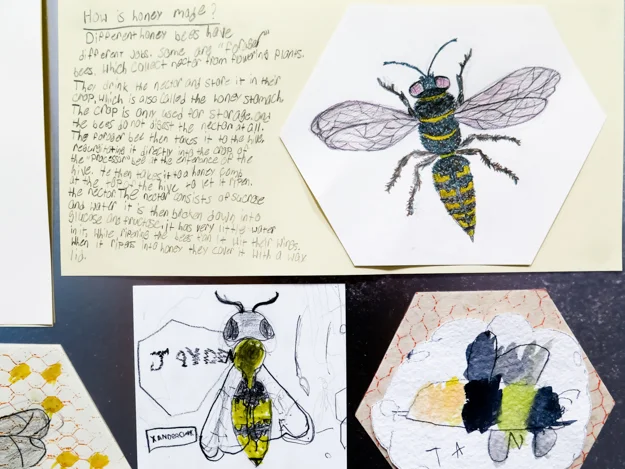 How is honey made?
Different honey bees have
different jobs. some are "forager"
bees, which collect nectar from flowering plants.
They drink the nectar and store it in their
crop, which is also called the honey stomach.
The crop is only used for storage, and
the bees do not digest the nectar at all.
The forager bee then takes it to the hive,
regurgitating it directly into the crop of
the "processor" bee at the entrance of the
hive. It's then takes it to a honey comb
at the top of the hive to let it ripen.
the nectar The nectar consists of sucrose
and water it is then broken down into
glucose and fructose. It has very little water
in it. While ripening the bees fan it wit their wings.
When it ripens into honey they cover it with a wax
lid.
JAYDEN
TAN